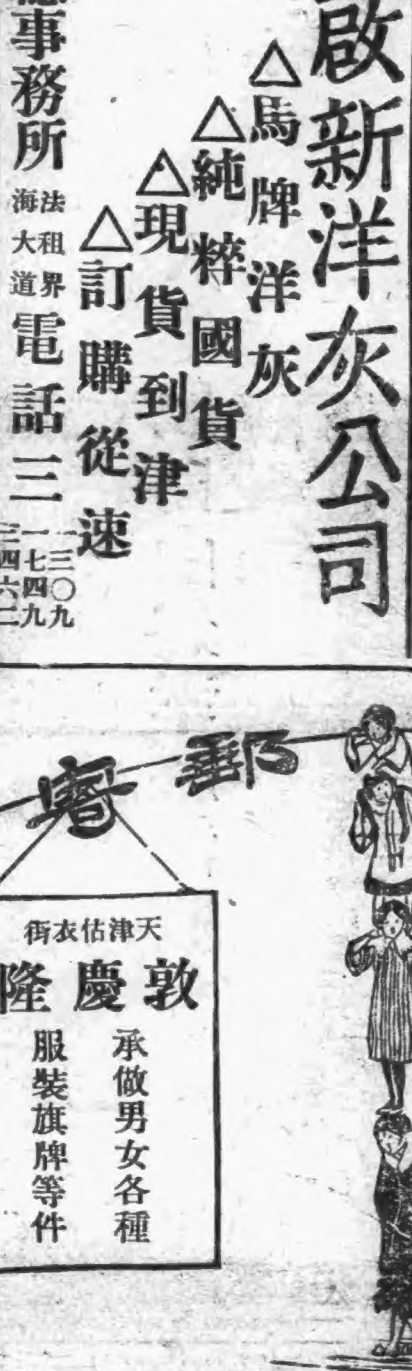 啟新洋灰公司
△馬牌洋灰
△純粹國貨
△現貨到津
△訂購從速
事務所
法租界
海大道
電話三
一三〇九
一七四九
三四六二
郵寄
天津估衣街
敦慶隆
承做男女各種
服裝旗牌等件